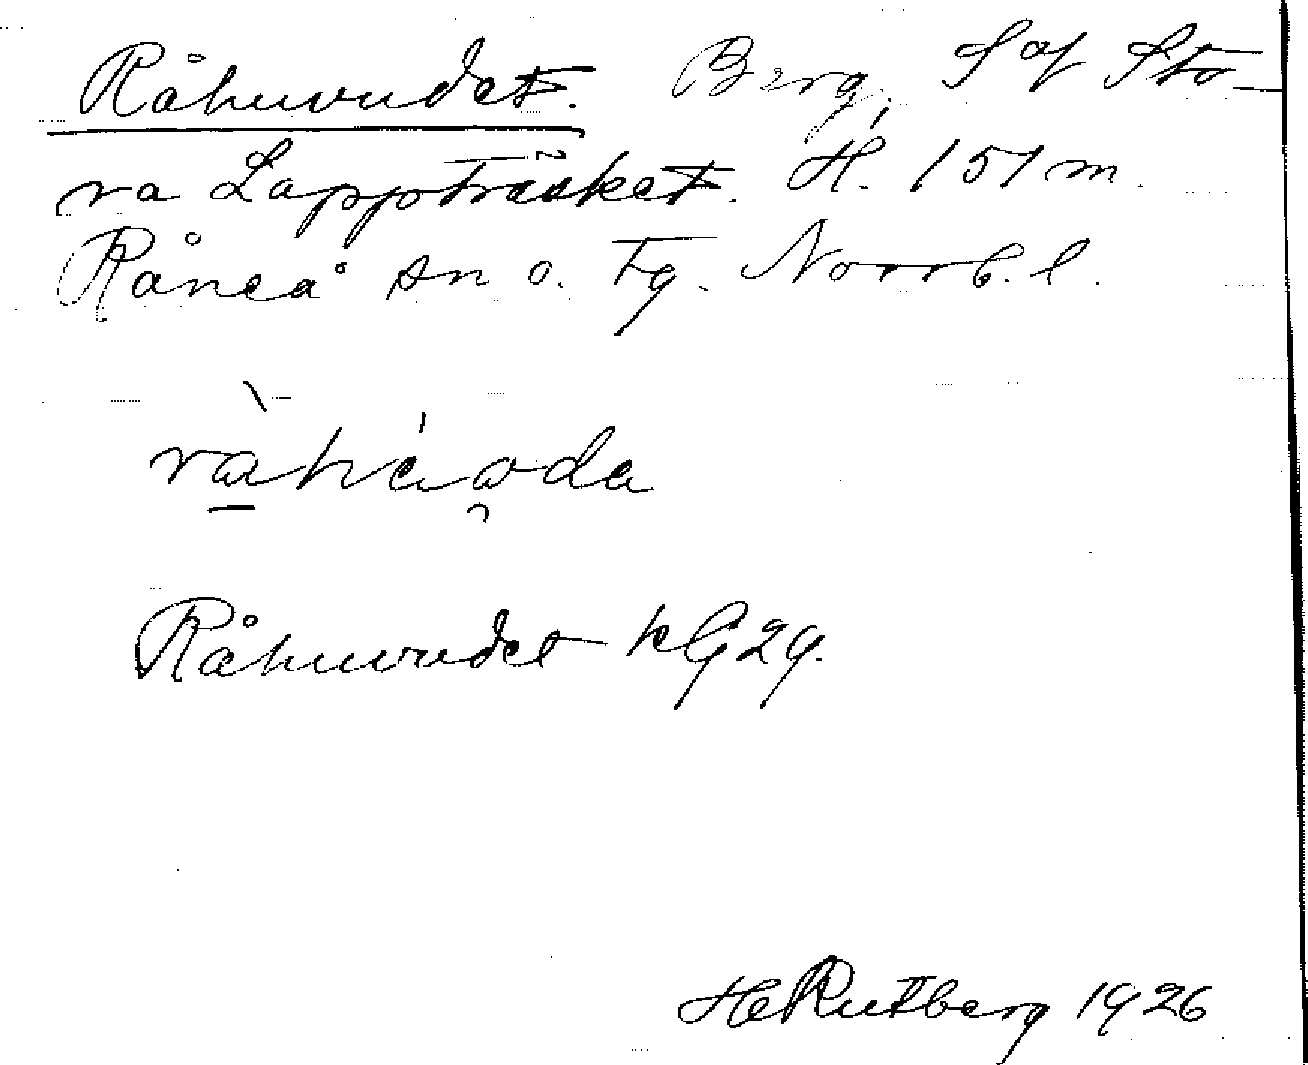 Råhuvudet. Berg, S of Sto-
ra Lappträsket. H. 151 m.
Råneå sn o. tg. Norrb. l.
Råhuvudet kG29.
HeRutberg 1926